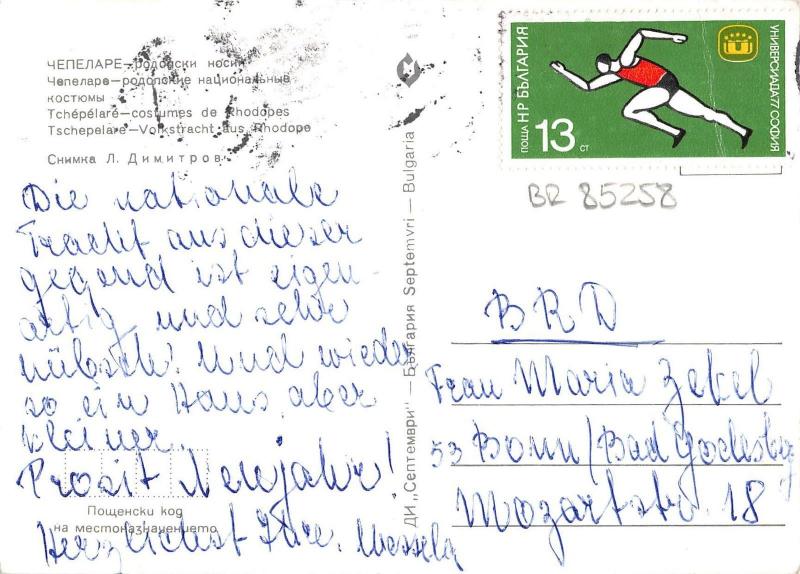 ЧЕПЕЛАРЕ—родопски носии
Чепеларе—родопские национальные
костюмы
Tchépélare—costumes de Rhodopes
Tschepelare—Volkstracht aus Rhodope
Снимка Л. Димитров
Die nationale
Tracht aus dieser
gegend ist eigen
artig und sehr
hübsch! Und wieder
so ein Haus, aber
kleiner.
Prosit Neujahr!
Herzlichst Ihre Wessela
Пощенски код
на местоназначението
ДИ „Септември" — България Septemvri — Bulgaria
НР БЪЛГАРИЯ
ПОЩА 13 СТ
УНИВЕРСИАДА'77 СОФИЯ
BR 85258
BRD
Frau Maria Zekel
53 Bonn/Bad Godesberg
Mozartstr. 18